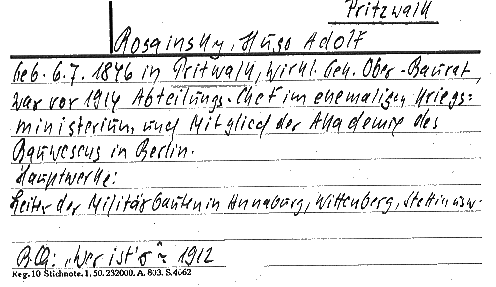 Pritzwalk
Rosainsky, Hugo Adolf
Geb. 6.7. 1846 in Pritwalk, Wirkl. Geh. Ober-Baurat,
war vor 1914 Abteilungs-Chef im ehemaligen Kriegs=
ministerium und Mitglied der Akademie des
Bauwesens in Berlin.
Hauptwerke:
Leiter der Militärbauten in Annaburg, Wittenberg, Stettin usw.
B.Q: "Wer ist's" 1912
Reg. 10 Stichnote. 1. 50. 232000. A. 803. S.4662